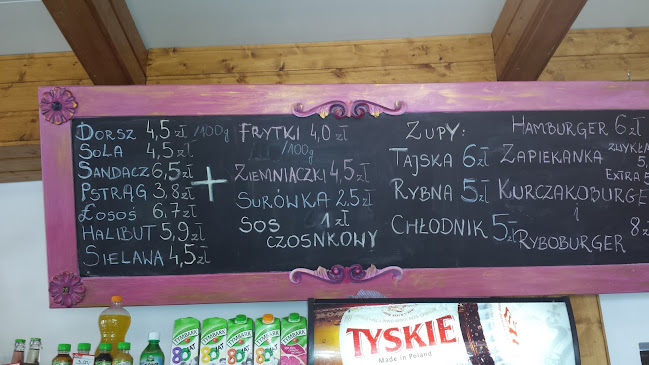 DORSZ 4,5 zł /100g
SOLA 4,5 zł
SANDACZ 6,5 zł
PSTRĄG 3,8 zł
ŁOSOŚ 6.7 zł
HALIBUT 5,9 zł
SIELAWA 4,5 zł
+
FRYTKI 4,0 zł
/100g
ZIEMNIACZKI 4,5 zł
SURÓWKA 2,5 zł
SOS 1 zł
CZOSNKOWY
ZUPY:
TAJSKA 6 zł
RYBNA 5 zł
CHŁODNIK 5 zł
HAMBURGER 6 zł
ZAPIEKANKA
EXTRA
KURCZAKOBURGE
I
RYBOBURGER 8 zł
TYMBARK
TYSKIE
Made in Poland